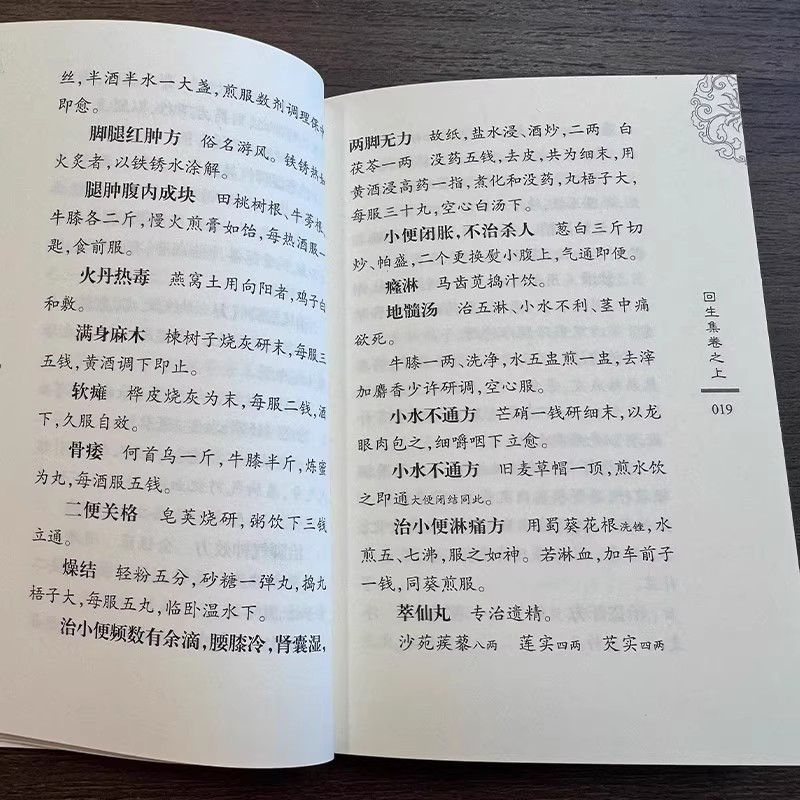 丝，半酒半水一大盏，煎服数剂调理保
即愈。
脚腿红肿方　俗名游风。铁锈热
火炙者，以铁锈水涂解。
腿肿腹内成块　田桃树根、牛蒡根、
牛膝各二斤，慢火煎膏如饴，每热酒服一
匙，食前服。
火丹热毒　燕窝土用向阳者，鸡子白
和敷。
满身麻木　楝树子烧灰研末，每服三
五钱，黄酒调下即止。
软瘫　桦皮烧灰为末，每服二钱，酒
下，久服自效。
骨痿　何首乌一斤，牛膝半斤，炼蜜
为丸，每酒服五钱。
二便关格　皂荚烧研，粥饮下三钱
立通。
燥结　轻粉五分，砂糖一弹丸，捣丸
梧子大，每服五丸，临卧温水下。
治小便频数有余滴，腰膝冷，肾囊湿，
两脚无力　故纸，盐水浸、酒炒，二两　白
茯苓一两　没药五钱，去皮，共为细末，用
黄酒浸高药一指，煮化和没药，丸梧子大，
每服三十丸，空心白汤下。
小便闭胀，不治杀人　葱白三斤切
炒、帕盛，二个更换熨小腹上，气通即便。
癃淋　马齿苋捣汁饮。
地髓汤　治五淋、小水不利、茎中痛
欲死。
牛膝一两、洗净，水五盅煎一盅，去滓
加麝香少许研调，空心服。
小水不通方　芒硝一钱研细末，以龙
眼肉包之，细嚼咽下立愈。
小水不通方　旧麦草帽一顶，煎水饮
之即通大便闭结同此。
治小便淋痛方　用蜀葵花根洗锉，水
煎五、七沸，服之如神。若淋血，加车前子
一钱，同葵煎服。
萃仙丸　专治遗精。
沙苑蒺藜八两　莲实四两　芡实四两
回生集卷之上
019